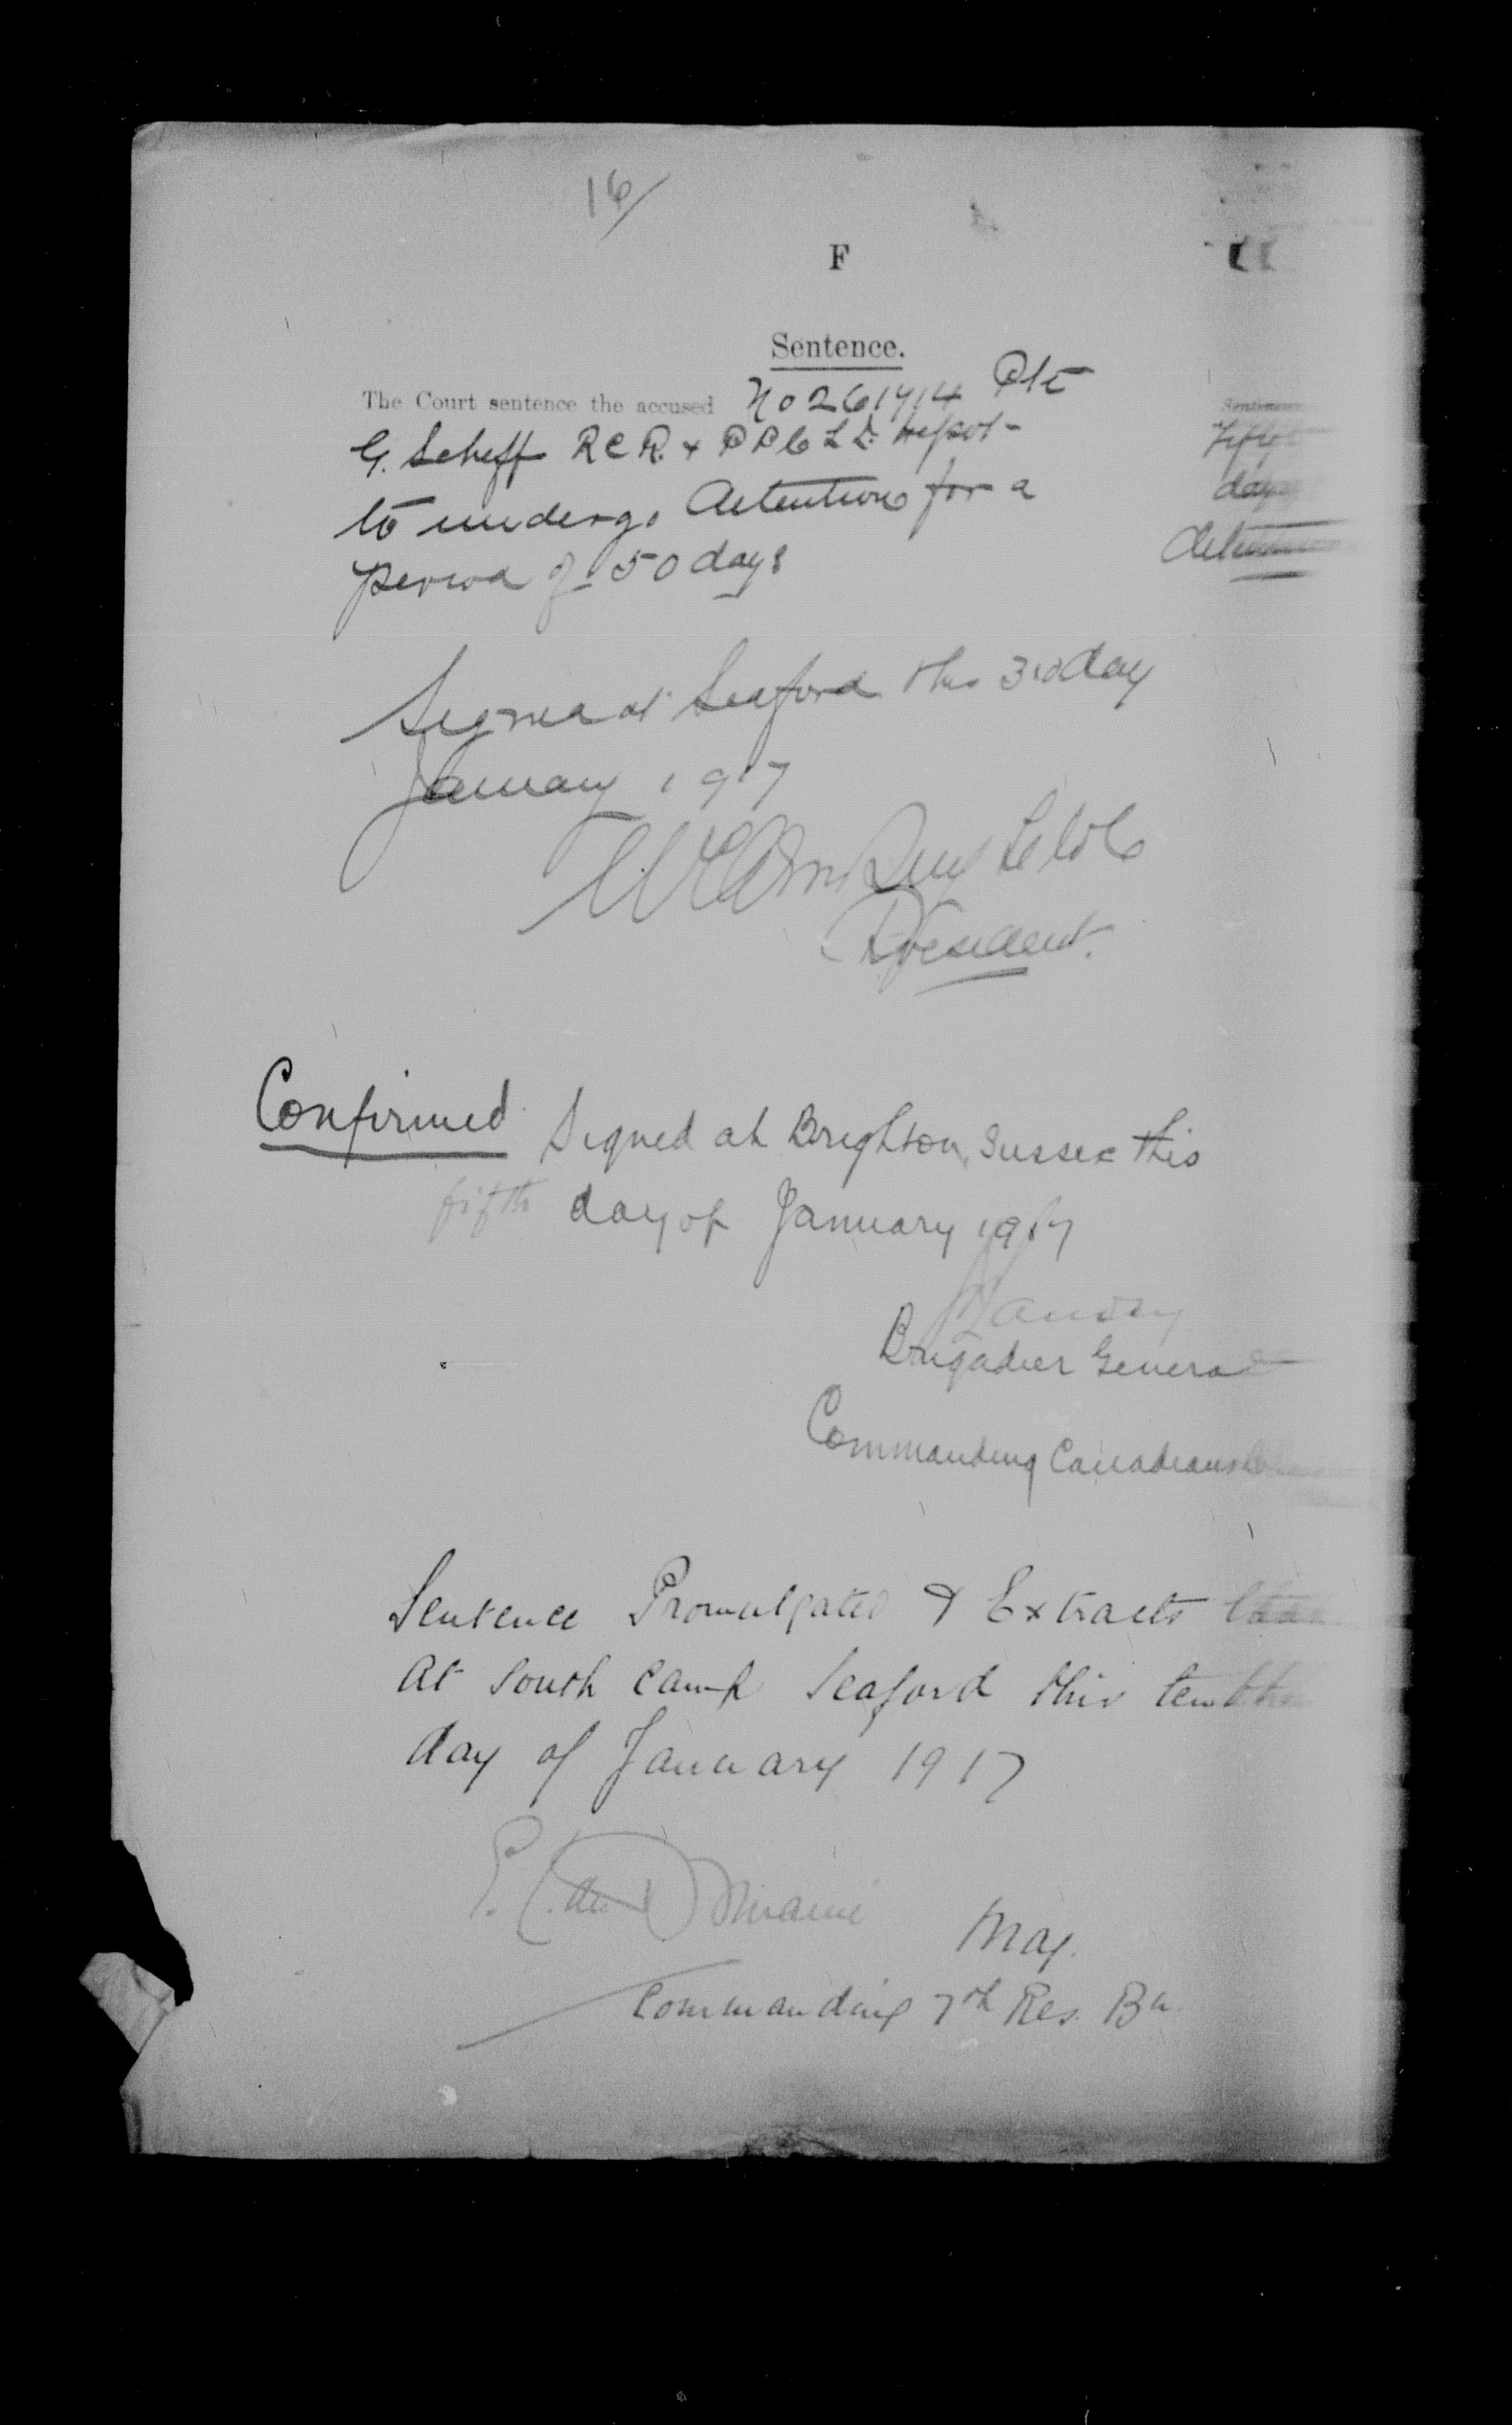 16/
F
Sentence.
The Court sentence the accused No 261714 Pte
G. Scheff R C R. & P P C L I. Depot
to undergo detention for a
period of 50 days
Sentence
Fifty
days
detention
Signed at Seaford this 3rd day
January 1917
Lt Col
President.
Confirmed Signed at Brighton, Sussex this
fifth day of January 1917
Brigadier General
Commanding Canadians
Sentence Promulgated & Extracts
at South Camp Seaford this tenth
day of January 1917
Maj.
Commanding 7th Res. Bn.